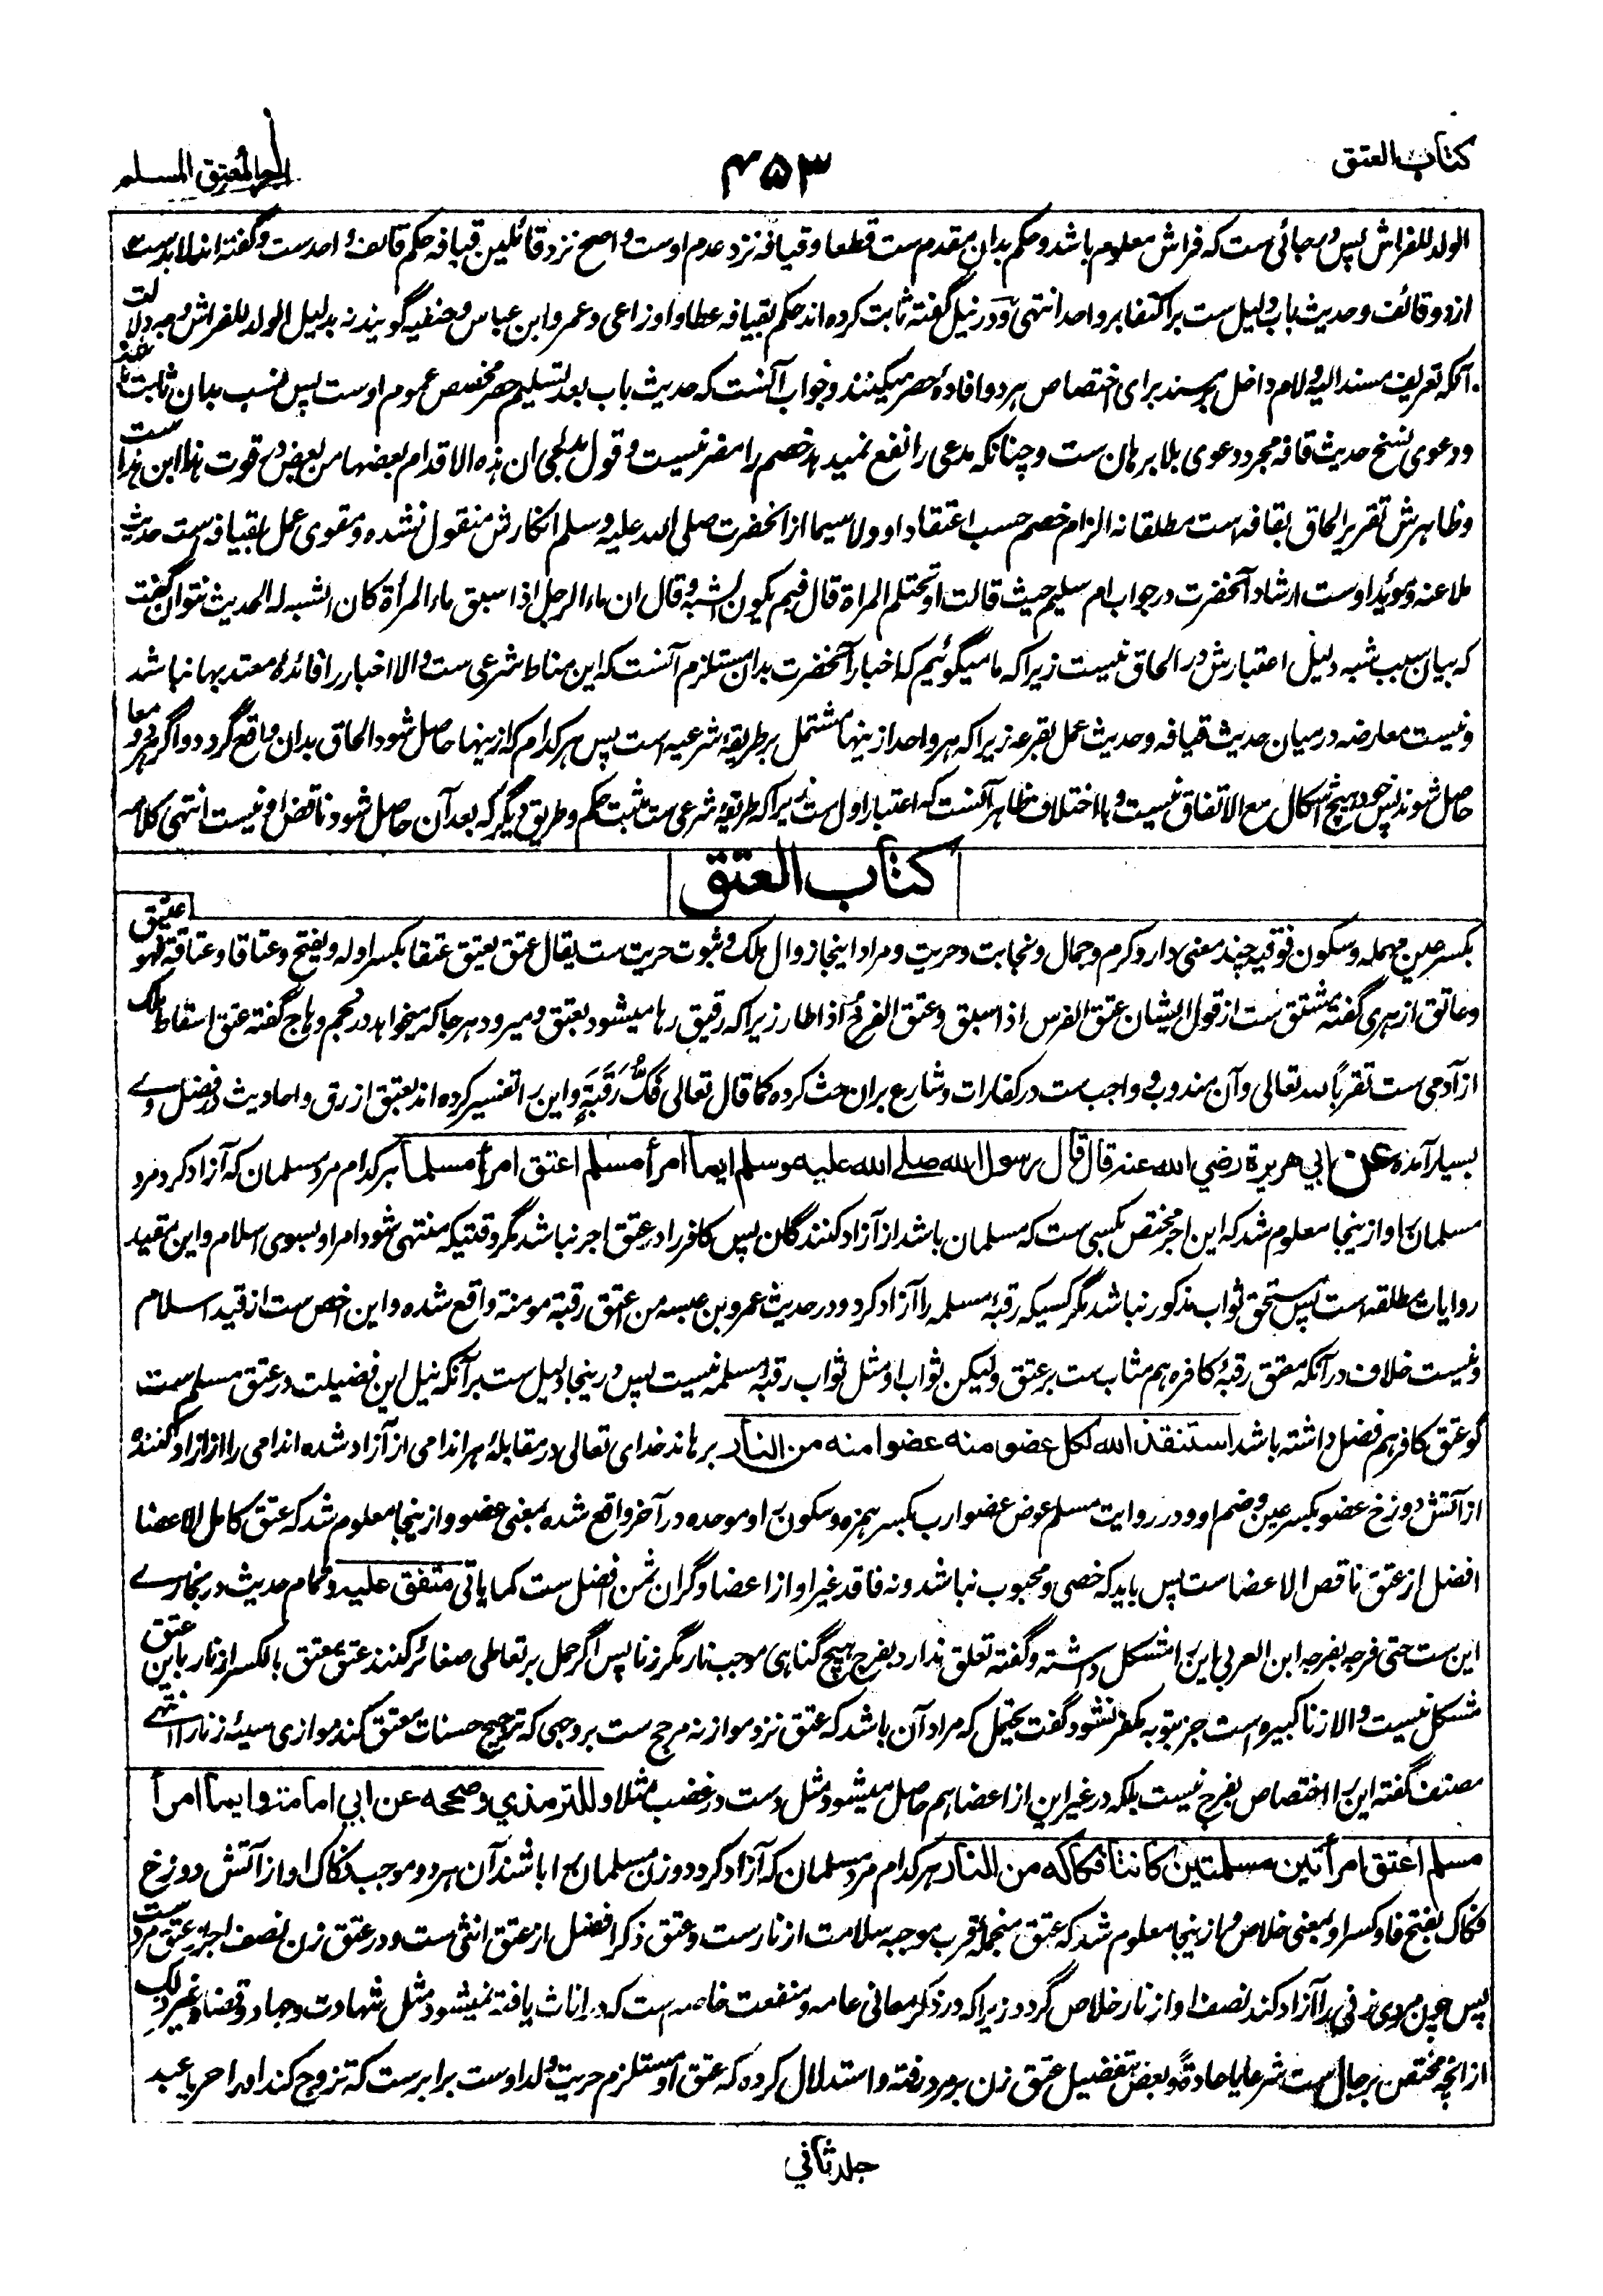 كتاب العتق
۴۵۳
اجر المعتق المسلم
الولد للفراش پس در جائی ست که فراش معلوم باشد و حکم بدان مقدم ست قطعا و قیافه نزد عدم اوست و اصح نزد قائلین قیافه حکم قائف واحد ست و گفته اند لابد ست
از دو قائف و حدیث باب دلیل ست بر اکتفا بر واحد انتهی و در نیل گفته ثابت کرده اند حکم بقیافه عطا و اوزاعی و عمر و ابن عباس و حنفیه گویند نه بدلیل الولد للفراش وجه دلالت
آنکه تعریف مسند الیه و لام داخل بر مسند برای اختصاص هر دو افاده حصر میکنند و جواب آنست که حدیث باب بعد تسلیم حصر مخصص عموم اوست پس نسب بدان ثابت
ودعوی نسخ حدیث قافه مجرد دعوی بلا برهان ست و چنانکه مدعی را نفع نمیدهد خصم را مضر نیست و قول مدلجی ان هذه الاقدام بعضها من بعض در قوت هذا ابن هذا ست
وظاهرش تقریر الحاق بقافه است مطلقا نه الزام خصم حسب اعتقاد او ولا سیما از آنحضرت صلی الله علیه وسلم انکارش منقول نشده و مقوی عمل بقیافه ست حدیث
ملاعنه و مؤید اوست ارشاد آنحضرت در جواب ام سلیم حیث قالت او تحتلم المراة قال فیم یکون الشبه وقال ان ماء الرجل اذا سبق ماء المرأة کان الشبه له الحدیث نتوان گفت
که بیان سبب شبه دلیل اعتبارش در الحاق نیست زیرا که ما میگوئیم که اخبار آنحضرت بدان مستلزم آنست که این مناط شرعی ست و الا اخبار را فائده معتد بها نباشد
ونیست معارضه درمیان حدیث قیافه و حدیث عمل بقرعه زیرا که هر واحد ازینها مشتمل بر طریقه شرعیه است پس هر کدام که ازینها حاصل شود الحاق بدان واقع گردد و اگر هر دو معا
حاصل شوند پس خود هیچ اشکال مع الاتفاق نیست و با اختلاف ظاهر آنست که اعتبار اول ست زیرا که طریقه شرعی ست مثبت حکم و طریق دیگر که بعد آن حاصل شود ناقض او نیست انتهی کلامه
كتاب العتق
بکسر عین مهمله و سکون فوقیه چند معنی دارد کرم و جمال و نجابت و حریت و مراد اینجا زوال ملک و ثبوت حریت ست یقال عتق یعتق عتقا بکسر اوله و یفتح وعتاقا وعتاقة فهو عتیق
وعاتق ازهری گفته مشتق ست از قول ایشان عتق الفرس اذا سبق وعتق الفرخ اذا طار زیرا که رقیق رها میشود بعتق و میرود هر جا که میخواهد در نجم وهاج گفته عتق اسقاط ملک
از آدمی ست تقرباً لله تعالی و آن مندوب و واجب ست در کفارات و شارع بران حث کرده کما قال تعالی فَكُّ رَقَبَةٍ و این را تفسیر کرده اند بعتق از رق و احادیث در فضل وے
بسیار آمده عن ابي هريرة رضي الله عنه قال قال رسول الله صلے الله عليه وسلم ايما امرأ مسلم اعتق امرأ مسلما هر کدام مرد مسلمان که آزاد کرد مرد
مسلمان را و ازینجا معلوم شد که این اجر مختص بکسی ست که مسلمان باشد از آزاد کنندگان پس کافر را در عتق اجر نباشد مگر وقتیکه منتهی شود امر او بسوی اسلام و این مقید
روایات مطلقه است پس مستحق ثواب مذکور نباشد مگر کسیکه رقبه مسلمه را آزاد کرد و در حدیث عمرو بن عبسه من اعتق رقبة مومنة واقع شده و این اخص ست از قید اسلام
ونیست خلاف در آنکه معتق رقبه کافره هم مثاب ست بر عتق ولیکن ثواب او مثل ثواب رقبه مسلمه نیست پس درینجا دلیل ست بر آنکه نیل این فضیلت در عتق مسلم ست
گو عتق کافر هم فضل داشته باشد استنقذ الله لكل عضو منه عضوا منه من النار برهاند خدای تعالی در مقابله هر اندامی از آزاد شده اندامی را از آزاد کننده
از آتش دوزخ عضو بکسر عین و ضم او و در روایت مسلم عوض عضو ارب بکسر همزه و سکون را و موحده در آخر واقع شده بمعنی عضو و ازینجا معلوم شد که عتق کامل الاعضا
افضل از عتق ناقص الاعضا ست پس باید که خصی و مجبوب نباشد و نه فاقد غیر او از اعضا و گران ثمن افضل ست کما یاتی متفق عليه و تمام حدیث در بخاری
این ست حتی فرجه بفرجه ابن العربی این را مشکل داشته و گفته تعلق ندارد بفرج هیچ گناهی موجب نار مگر زنا پس اگر حمل بر تعاطی صغائر کنند عتق معتق بالکسر از نار باین عتق
مشکل نیست و الا زنا کبیره است جز بتوبه مکفر نشود گفت یحتمل که مراد آن باشد که عتق نزد موازنه مرجح ست بروجهی که ترجیح حسنات معتق کند موازی سیئه زنا را انتهے
مصنف گفته این را اختصاص بفرج نیست بلکه در غیر این از اعضا هم حاصل میشود مثل دست در غضب مثلا وللترمذي وصححه عن ابي امامة وايما امرأ
مسلم اعتق امرأتين مسلمتين كانتا فكاكه من النار هر کدام مرد مسلمان که آزاد کرد دو زن مسلمان را باشند آن هر دو موجب فکاک او از آتش دوزخ
فکاک بفتح فا و کسر او بمعنی خلاص و ازینجا معلوم شد که عتق منجمله قرب موجبه سلامت از نار ست و عتق ذکر افضل از عتق انثی ست و در عتق زن نصف اجر عتق مرد ست
پس چون مردی زنی را آزاد کند نصف او از نار خلاص گردد زیرا که در ذکر معانی عامه و منفعت خاصه ست که در اناث یافته نمیشود مثل شهادت و جهاد و قضا وغیر ذلک
از انچه مختص برجال ست شرعا یا عادة و بعض بتفضیل عتق زن بر مرد رفته و استدلال کرده که عتق او مستلزم حریت ولد اوست برابر ست که تزوج کند او را حر یا عبد
جلد ثاني